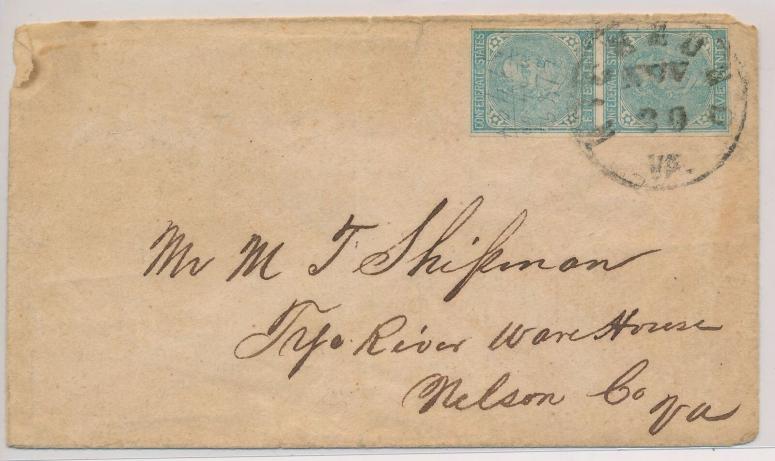 CONFEDERATE STATES
FIVE CENTS
CONFEDERATE STATES
FIVE CENTS
RICHMOND
30
VA.
Mr M T Shipman
Tye River WareHouse
Nelson Co Va